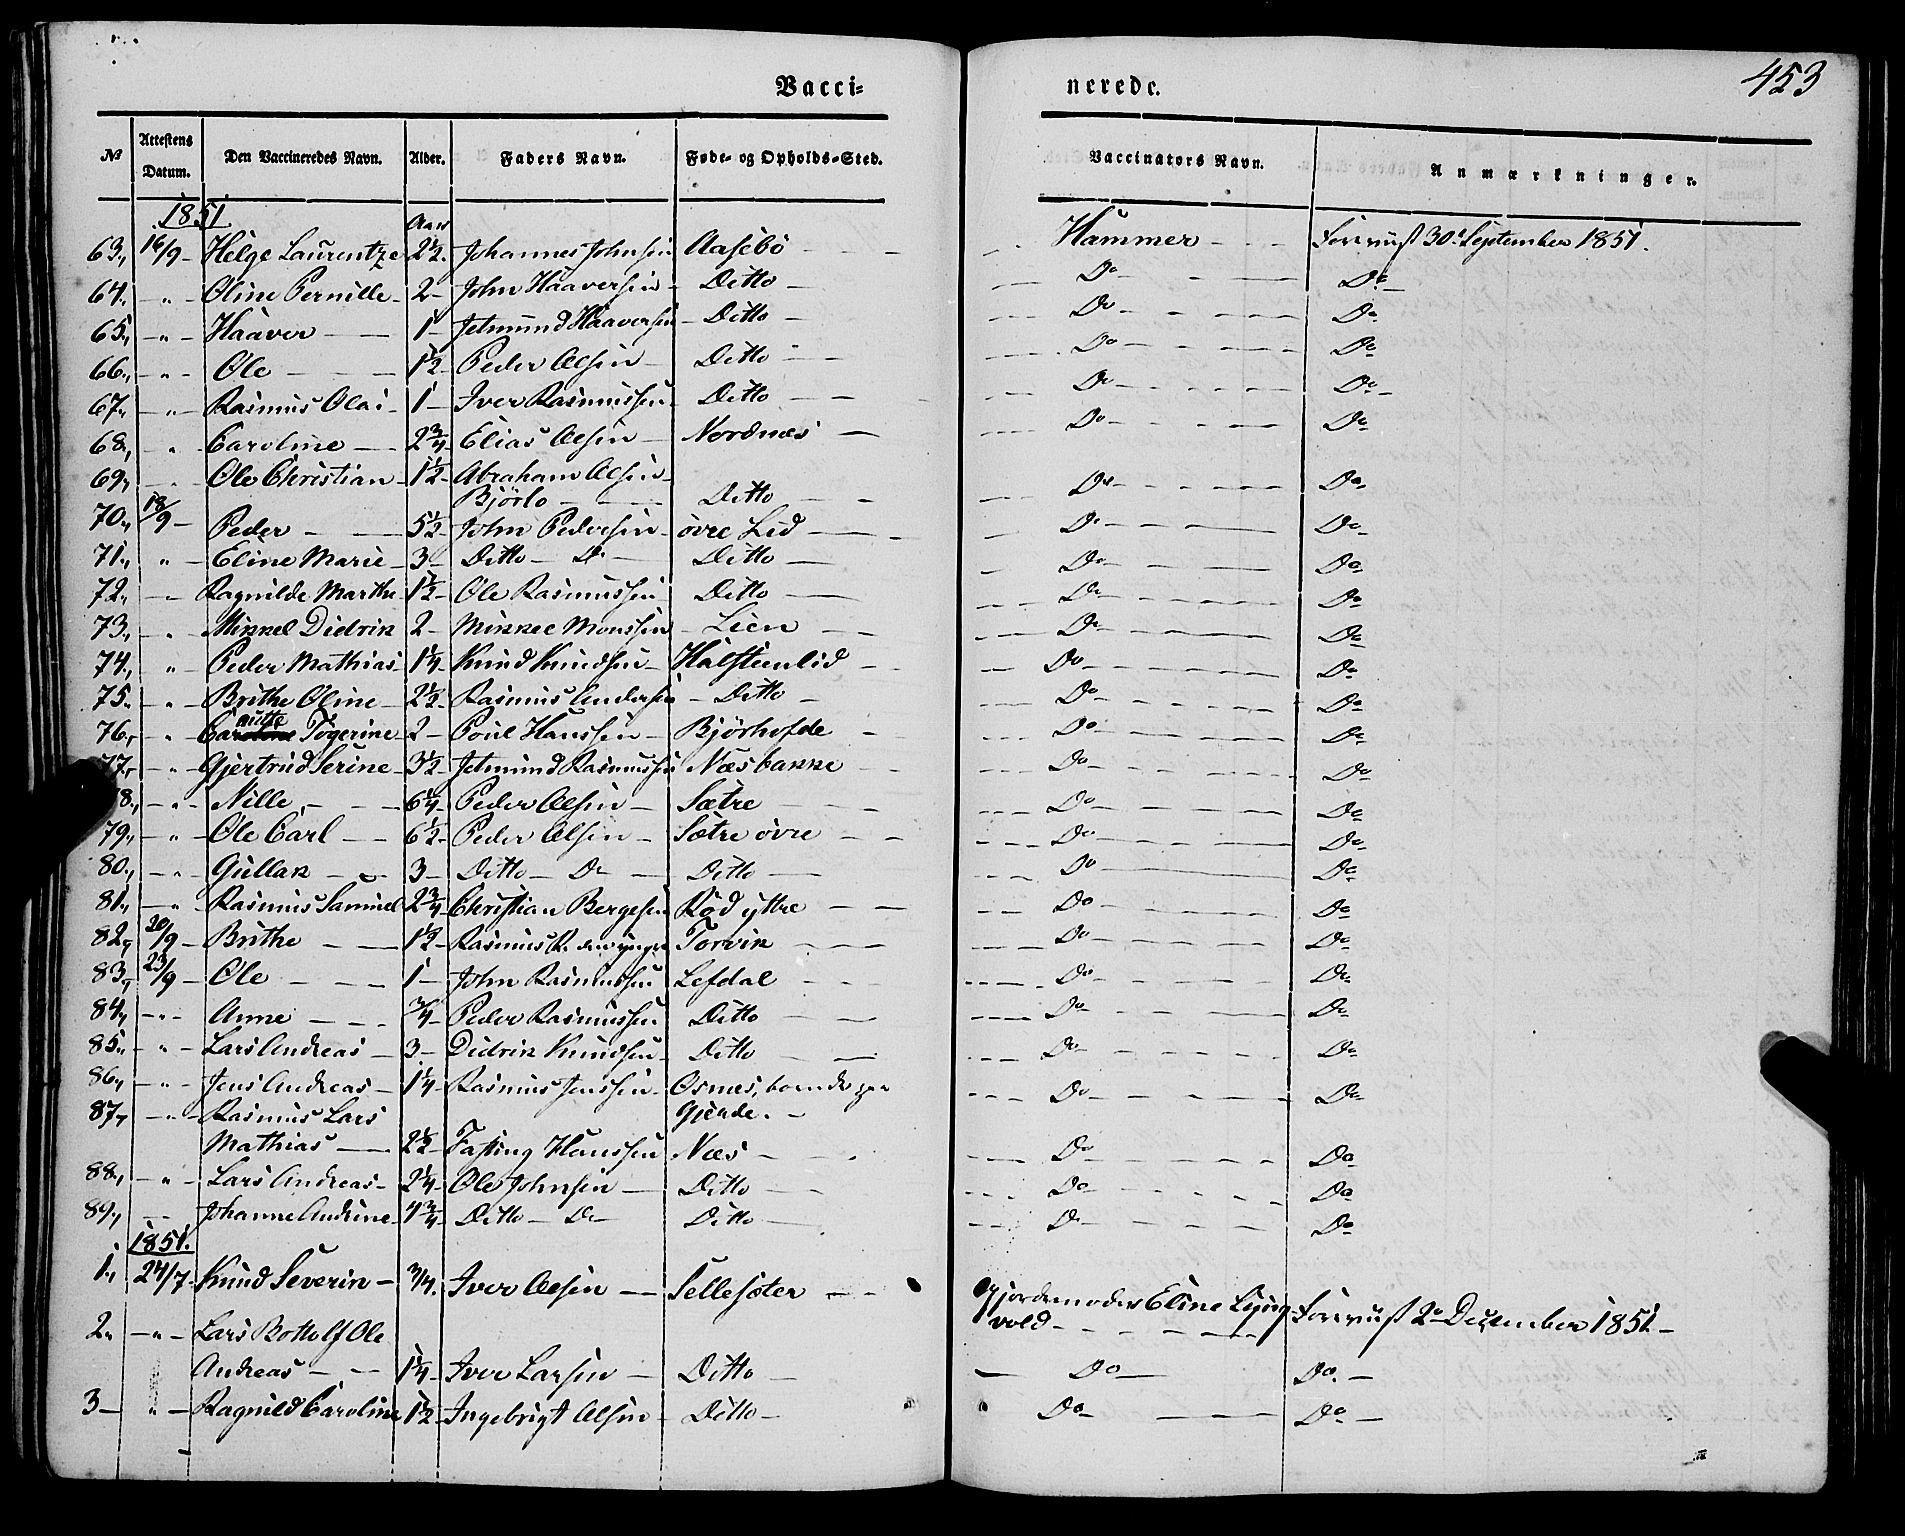 453
Vacci-nerede.
№ Attestens Datum. Den Vaccineredes Navn. Alder. Faders Navn. Føde- og Opholds-Sted. Vaccinators Navn. Anmærkninger.
1851 Aar
63., 16/9 - Helge Laurentze 2½. Johannes Johnsen Aasebö - - Hammer - - - Forevist 30te September 1851.
64. - „ - Oline Pernille - 2 - John Haaversen - Ditto - Do - Do -
65., - „ - Haaver - - 1 - Jetmund Haaversen - Ditto - Do - Do
66., - „ - Ole - - - 1½ - Peder Olsen - Ditto - Do - Do
67., - „ - Rasmus Olai - 1 - Iver Rasmussen - Ditto - Do - Do -
68., - „ Caroline - 2¾ - Elias Olsen - Nordnæs - Do - Do
69., - „ Ole Christian - 1½ - Abraham Olsen -
Björlo - - Ditto - - Do - Do
70., 18/9 - Peder - - 5½ - John Pedersen - övre Lid - Do - Do
71., „ - Eline Marie - 3 - Ditto - Do - Ditto - Do - Do
72., - „ Ragnilde Marthe - 1½ - Ole Rasmussen - Ditto - Do - Do
73., - „ Mikkel Didrik 2 - Mikkel Monssen - Lien - Do - Do
74., - „ - Peder Mathias 1¼ - Knud Knudsen - Halstenlid - Do - Do
75. - „ - Brithe Oline - 2½ - Rasmus Andersen - Ditto - Do - Do
76., - „ Tögerine - 2 - Poul Hanssen - Björhofde - Do - Do
77., - „ - Gjertrud Serine - 3½ - Jetmund Rasmussen Næsbakke - Do - Do
78., - „ - Nille, - - 6¼ - Peder Olsen - Sætre - Do - Do
79., - „ Ole Carl - - 6½ - Peder Olsen - Sætre övre - Do - Do
80., - „ - Gullak - - 3 - Ditto - Do - Ditto - Do - Do
81., - „ Rasmus Samuel 2¾ - Christian Bergesen Röd yttre - Do - Do
82., 20/9 - Brithe - - 1½ - Rasmus R. den yngre Torvik - Do - Do
83., 23/9 - Ole - - - 1 - John Rasmussen Lefdal - Do - Do
84., - „ - Anne - - - ¾ - Peder Rasmussen Ditto - Do - Do
85., - „ - Lars Andreas - 3 - Didrik Knudsen - Ditto - Do - Do
86., - „ - Jens Andreas - 1¼ - Rasmus Jenssen - Osnæs,
Gjerde. - Do - Do
87., - „ - Rasmus Lars
Mathias - 2½ - Fasting Hanssen Næs - Do - Do
88., - „ - Lars Andreas - 2¼ - Ole Johnsen - Ditto - Do - Do
89., - - Johanne Andrine - 4¾ - Ditto - Do - Ditto - Do - Do
1851.
1., 24/7 - Knud Severin - ¾. Iver Olsen - Sellesæter - - Gjordemoder Eline
vold - - - Forevist 2n December 1851. -
2. - „ - Lars Bottolf Ole
Andreas - - 1¼ - Iver Larsen - Ditto - Do - Do. -
3 - „ - Ragnild Caroline 1½ - Ingebrigt Olsen - Ditto - Do - Do -